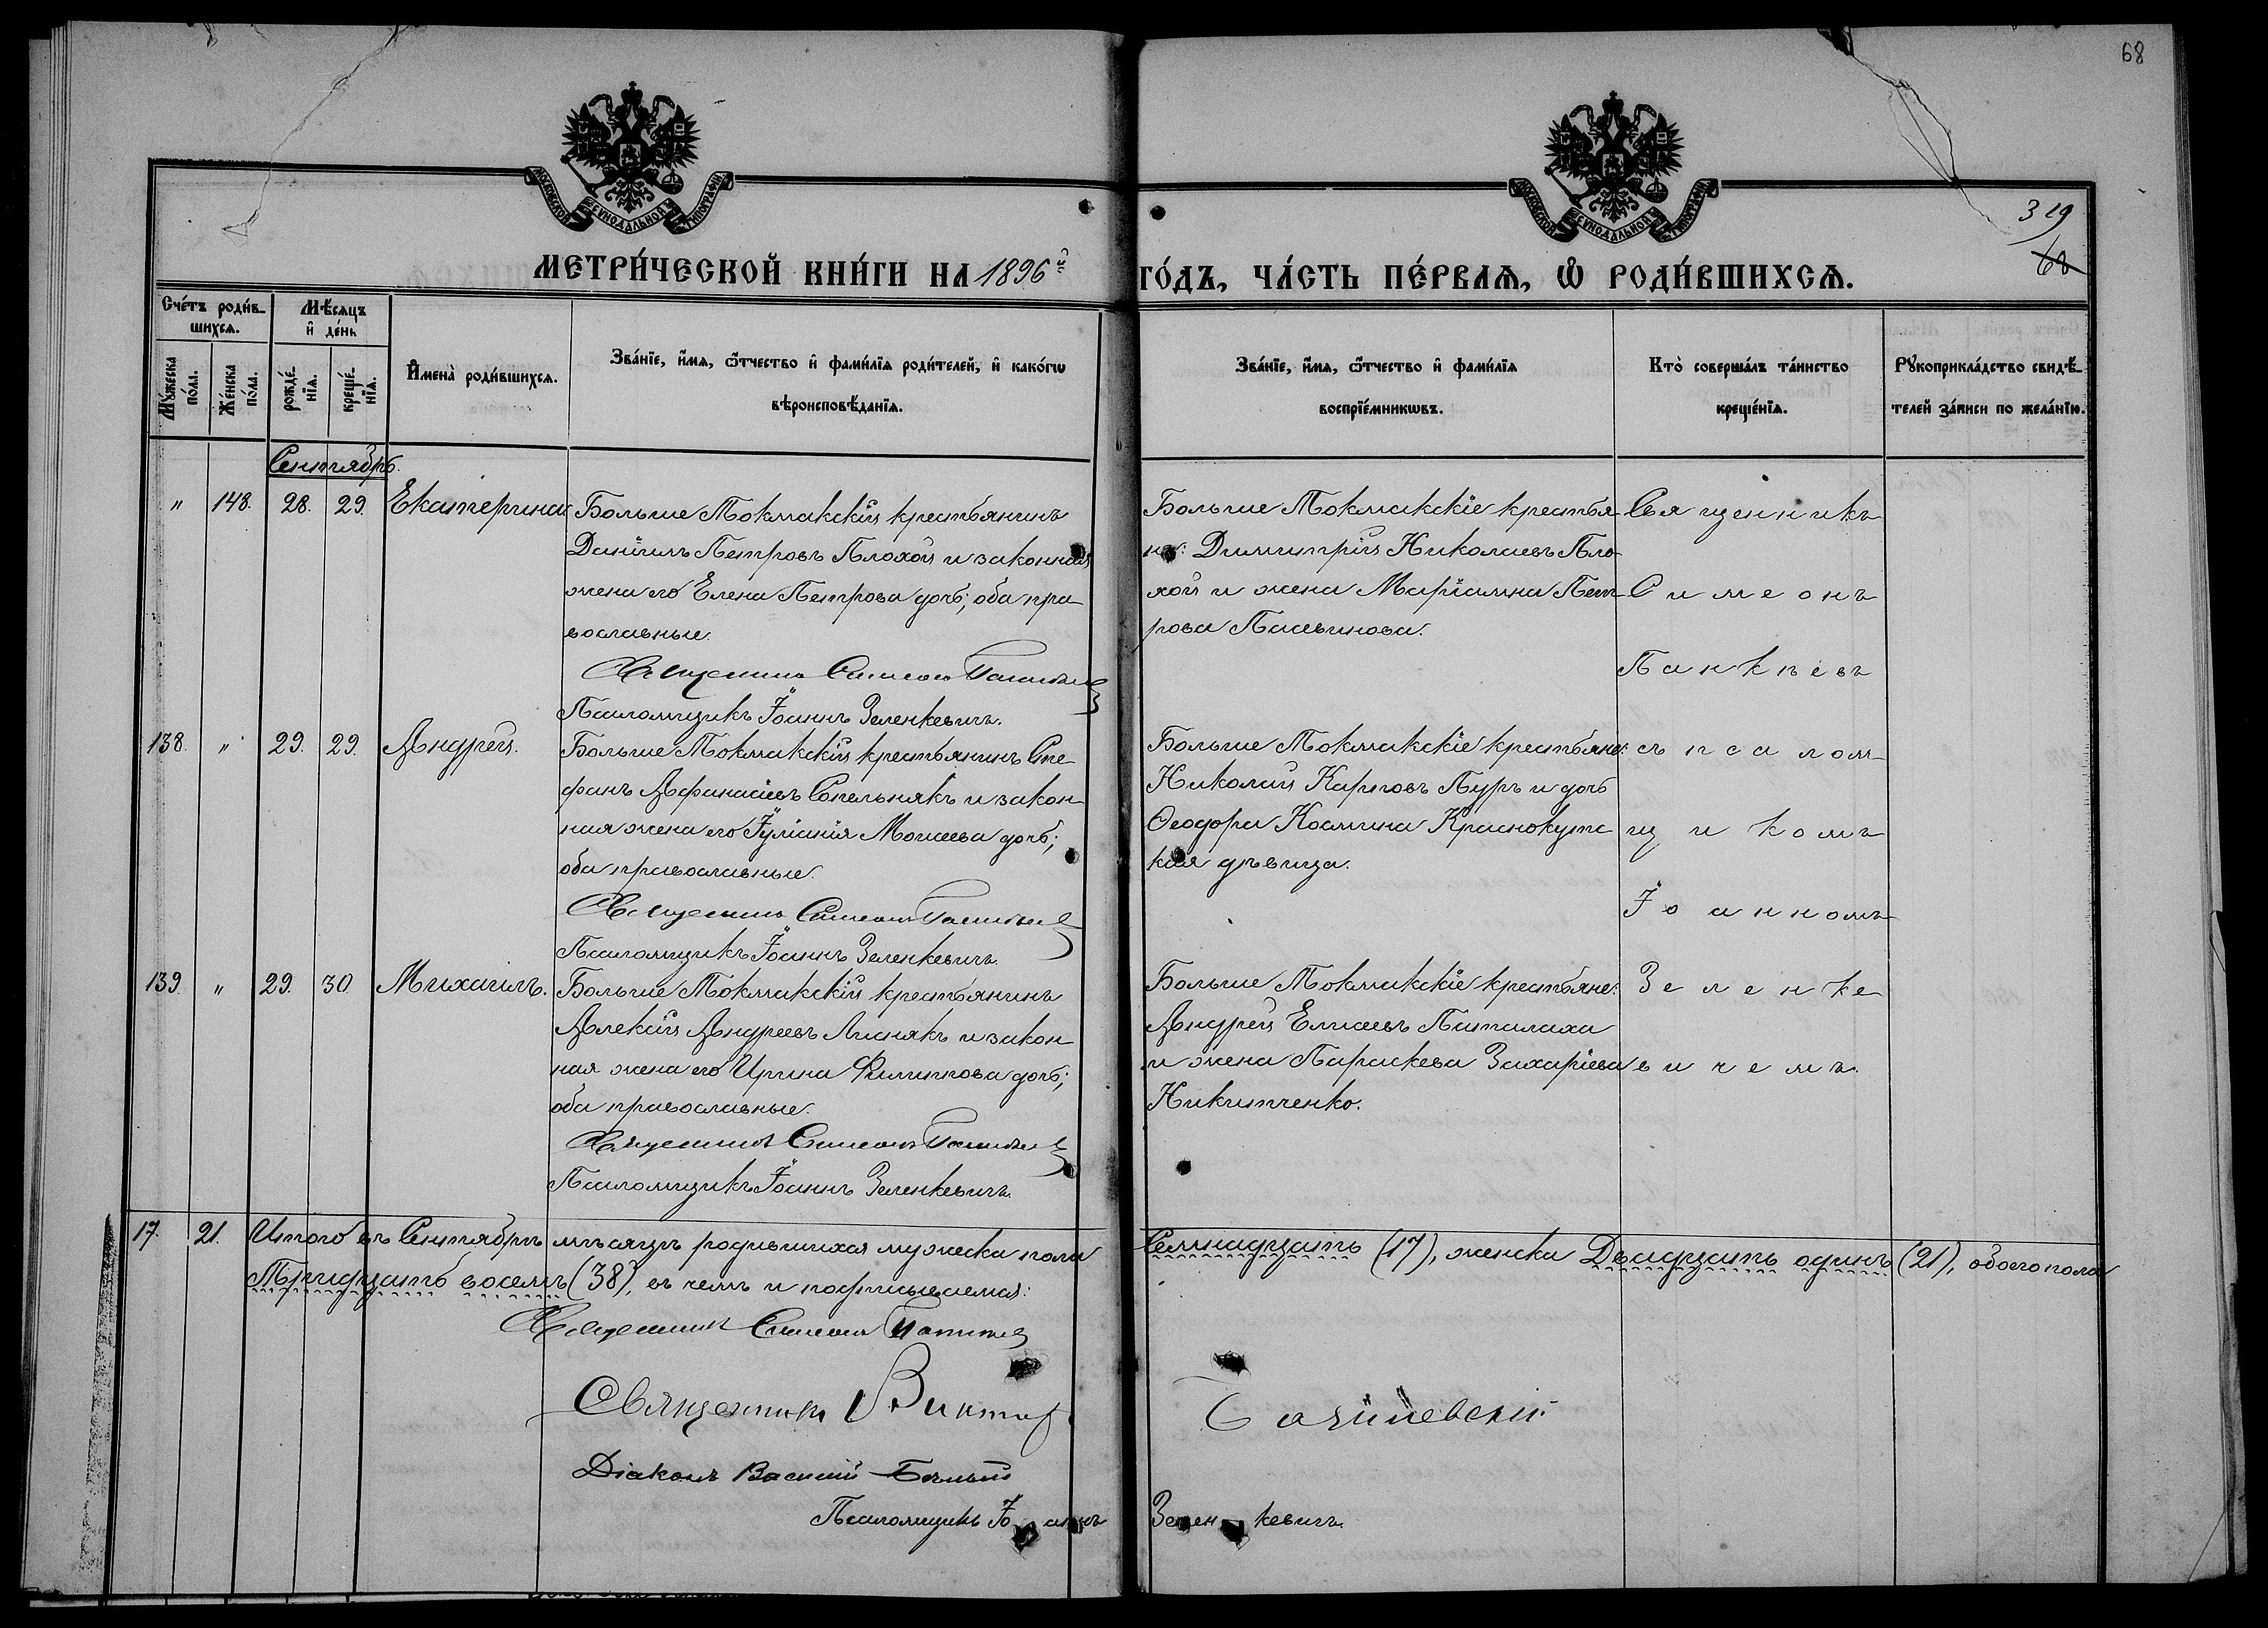 68
319
68
МОСКОВСКОЙ СѴНОДАЛЬНОЙ ТИПОГРАФІИ
МОСКОВСКОЙ СѴНОДАЛЬНОЙ ТИПОГРАФІИ
МЕТРИ́ЧЕСКОЙ КНИ́ГИ НА 1896й ГО́ДЪ, ЧА́СТЬ ПЕ́РВАѦ, Ѡ РОДИ́ВШИХСѦ.
Сче́тъ роди́в-
шихсѧ.
Мѣ́сѧцъ
и де́нь
Мꙋ́жеска
по́ла.
Же́нска
по́ла.
рожде́-
нїѧ.
креще́-
нїѧ.
Имена̀ роди́вшихсѧ.
Зва́нїе, и́мѧ, ѻ҆́тчество и фами́лїѧ роди́телей, и како́гѡ
вѣроисповѣ́данїѧ.
Зва́нїе, и́мѧ, ѻ҆́тчество и фами́лїѧ
воспрїе́мникѡвъ.
Кто̀ соверша́лъ та́инство
креще́нїѧ.
Рꙋкоприкла́дство свидѣ́-
телей за́писи по жела́нїю.
Сентябрь.
" 148. 28. 29. Екатерина
Больше Токмакскій крестьянинъ
Даніилъ Петровъ Плохой и законная
жена его Елена Петрова дочь; оба пра-
вославные.
Священникъ Симеонъ
Псаломщикъ Іоаннъ Зеленкевичъ.
Больше Токмакскіе крестья-
не: Димитрій Николаевъ Пло-
хой и жена Маріамна Пет-
рова Пасвинова.
138. " 29. 29. Андрей.
Больше Токмакскій крестьянинъ Сте-
фанъ Афанасіевъ Сопельнякъ и закон-
ная жена его Іуліанія Моисеева дочь;
оба православные.
Священникъ Симеонъ
Псаломщикъ Іоаннъ Зеленкевичъ.
Больше Токмакскіе крестьяне:
Николай Карповъ Пуръ и дочь
Ѳеодора Космина Краснокутс
кая дѣвица.
139. " 29. 30 Михаилъ.
Больше Токмакскій крестьянинъ
Алексій Андреевъ Лиснякъ и закон-
ная жена его Ирина Филиппова дочь;
оба православные.
Священникъ Симеонъ
Псаломщикъ Іоаннъ Зеленкевичъ.
Больше Токмакскіе крестьяне:
Андрей Елисеевъ Паталаха
и жена Параскева Захаріева
Никитченко.
Священникъ
Симеонъ
съ псалом-
щикомъ
Іоанномъ
Зеленке
вичемъ.
17. 21. Итого въ Сентябрѣ мѣсяцѣ родившихся мужеска пола Семнадцать (17), женска Двадцать одинъ (21), обоего пола
Тридцать восемь (38), въ чемъ и подписуемся:
Священникъ Симеонъ
Священникъ Виктор
Діаконъ Василій Бѣлый
Псаломщикъ Іоаннъ Зеленкевичъ